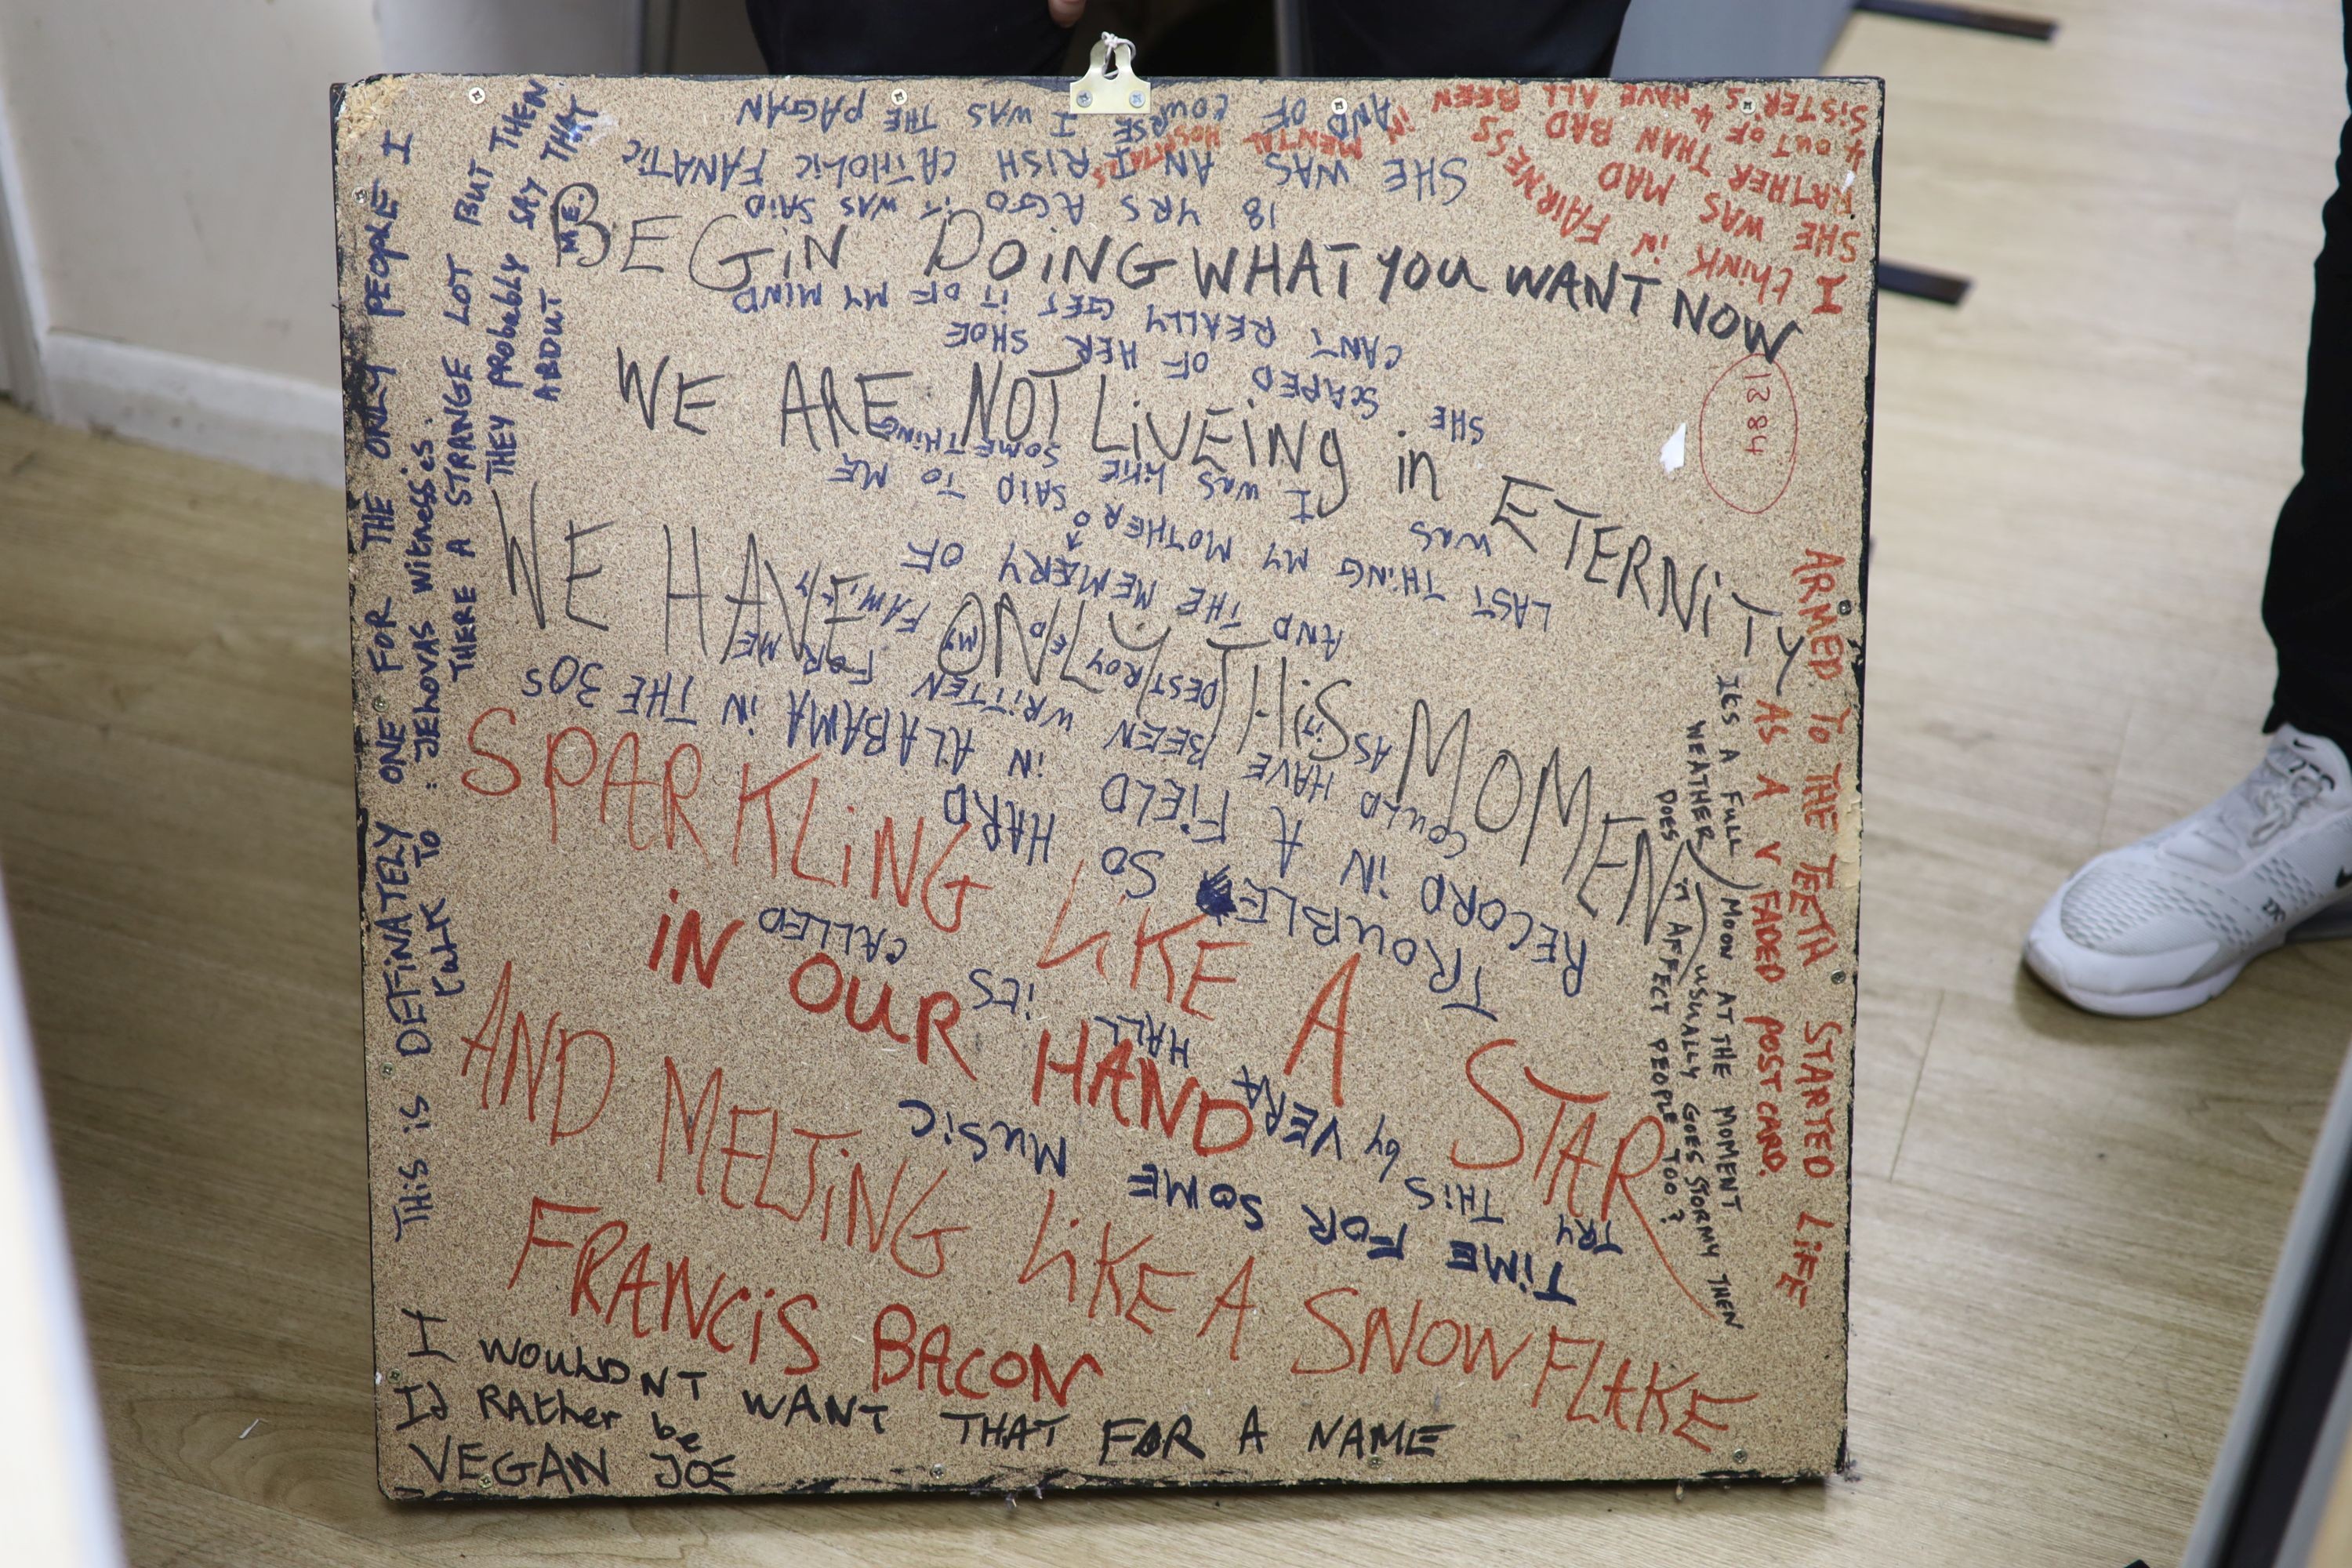 BEGiN DOiNG WHAT YOU WANT NOW
WE ARE NOT LiVEiNg in ETERNiTY
WE HAVE ONLY THiS MOMENT
SPARKLiNG LiKE A STAR
iN OUR HAND
AND MELTiNG LiKE A SNOWFLAKE
FRANCiS BACON
I WOULDNT WANT THAT FOR A NAME
Id RAther be
VEGAN JOE
THiS iS DEFiNATELY ONE FOR THE ONLY PEOPLE I
talk TO : JEHOVAS WitNESSES.
THERE A STRANGE LOT BUT THEN
THEY PRObAbly SAY THAT
ABOUT ME.
TiME FOR SOME MUSiC
TRY THiS by VERA HALL
itS CALLED
TROUBLE SO HARD
RECORD iN A FiELD iN ALABAMA iN THE 30S
COULD HAVE BEEN WRiTTEN FOR ME
AS iT DESTROYED MY FAMiLY
AND THE MEMERY OF
LAST THiNG MY MOTHER SAID TO ME
WAS I WAS LiKE SOMETHiNG
SHE SCAPED OF HER SHOE
CANT REALLY GET iT OF MY MIND
18 YRS AGO iT WAS SAiD
SHE WAS AN IRISH CATHOLiC FANATiC
AND OF COURSE I WAS THE PAGAN
I thiNK iN FAiRNESS
SHE WAS MAD
FARTHER THAN BAD
4 OUT OF 4
SiSTER'S HAVE ALL BEEN
iN MENTAL HOSPiTALS
1384
ARMED TO THE TEETH STARTED LiFE
AS A V FADED POSTCARD.
ItS A FULL MOON AT THE MOMENT
WEATHER USUALLY GOES STORMY THEN
DOES iT AFFECT PEOPLE TOO?